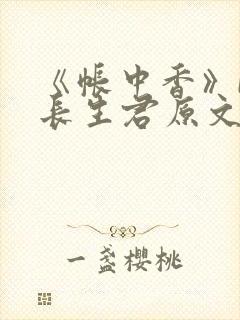 《帐中香》
长生君原文
一盏樱桃